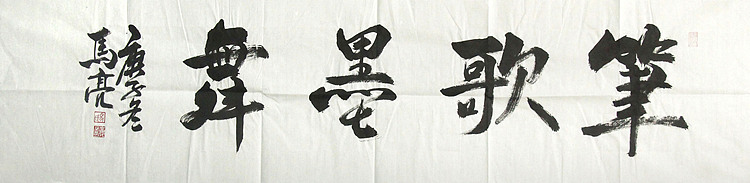 筆歌墨舞
庚子冬
馬亮